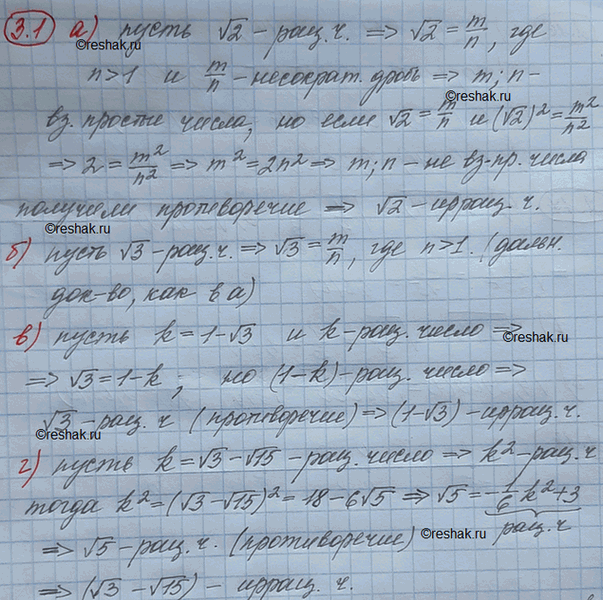 3.1 а) пусть √2 - рац. ч. ⇒ √2 = m/n, где
©reshak.ru
n>1 и m/n - несократ. дробь ⇒ m; n -
©reshak.ru
вз. простые числа, но если √2 = m/n и (√2)² = m²/n²
⇒ 2 = m²/n² ⇒ m² = 2n² ⇒ m; n - не вз-пр. числа
получили противоречие ⇒ √2 - иррац. ч.
©reshak.ru
б) пусть √3 - рац. ч. ⇒ √3 = m/n, где n>1. (дальн.
док-во, как в а)
в) пусть k = 1-√3 и k - рац. число ⇒
©reshak.ru
⇒ √3 = 1-k; но (1-k) - рац. число ⇒
√3 - рац. ч (противоречие) ⇒ (1-√3) - иррац. ч.
©reshak.ru
г) пусть k = √3 - √15 - рац. число ⇒ k² - рац. ч
тогда k² = (√3 - √15)² = 18 - 6√5 ⇒ √5 = -1/6 k² + 3
рац. ч
⇒ √5 - рац. ч. (противоречие)
©reshak.ru
⇒ (√3 - √15) - иррац. ч.